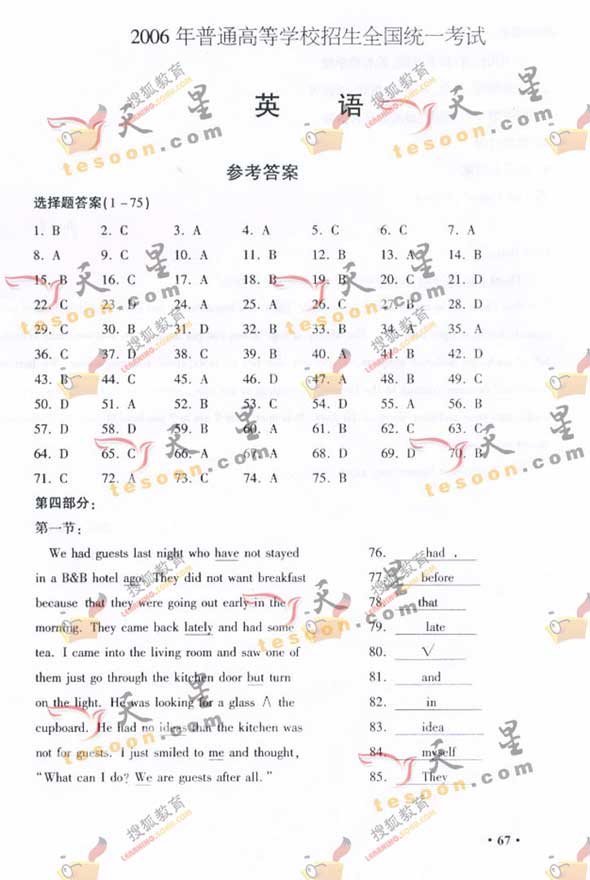 2006 年普通高等学校招生全国统一考试
英 语
参考答案
选择题答案(1-75)
1. B 2. C 3. A 4. A 5. C 6. C 7. A
8. A 9. C 10. A 11. B 12. B 13. A 14. B
15. B 16. C 17. A 18. B 19. B 20. C 21. D
22. C 23. D 24. A 25. A 26. C 27. B 28. D
29. C 30. B 31. D 32. B 33. B 34. A 35. A
36. C 37. D 38. C 39. B 40. A 41. B 42. D
43. B 44. C 45. A 46. D 47. A 48. B 49. C
50. D 51. A 52. B 53. C 54. D 55. A 56. B
57. D 58. D 59. B 60. A 61. B 62. C 63. C
64. D 65. C 66. A 67. A 68. D 69. D 70. B
71. C 72. A 73. C 74. A 75. B
第四部分:
第一节:
We had guests last night who have not stayed 76. had .
in a B&B hotel ago. They did not want breakfast 77. before
because that they were going out early in the 78. that
morning. They came back lately and had some 79. late
tea. I came into the living room and saw one of 80. √
them just go through the kitchen door but turn 81. and
on the light. He was looking for a glass ∧ the 82. in
cupboard. He had no ideas that the kitchen was 83. idea
not for guests. I just smiled to me and thought, 84. myself
"What can I do? We are guests after all." 85. They
· 67 ·
搜狐教育
LEARNING.SOHU.COM
天星
tesoon.com